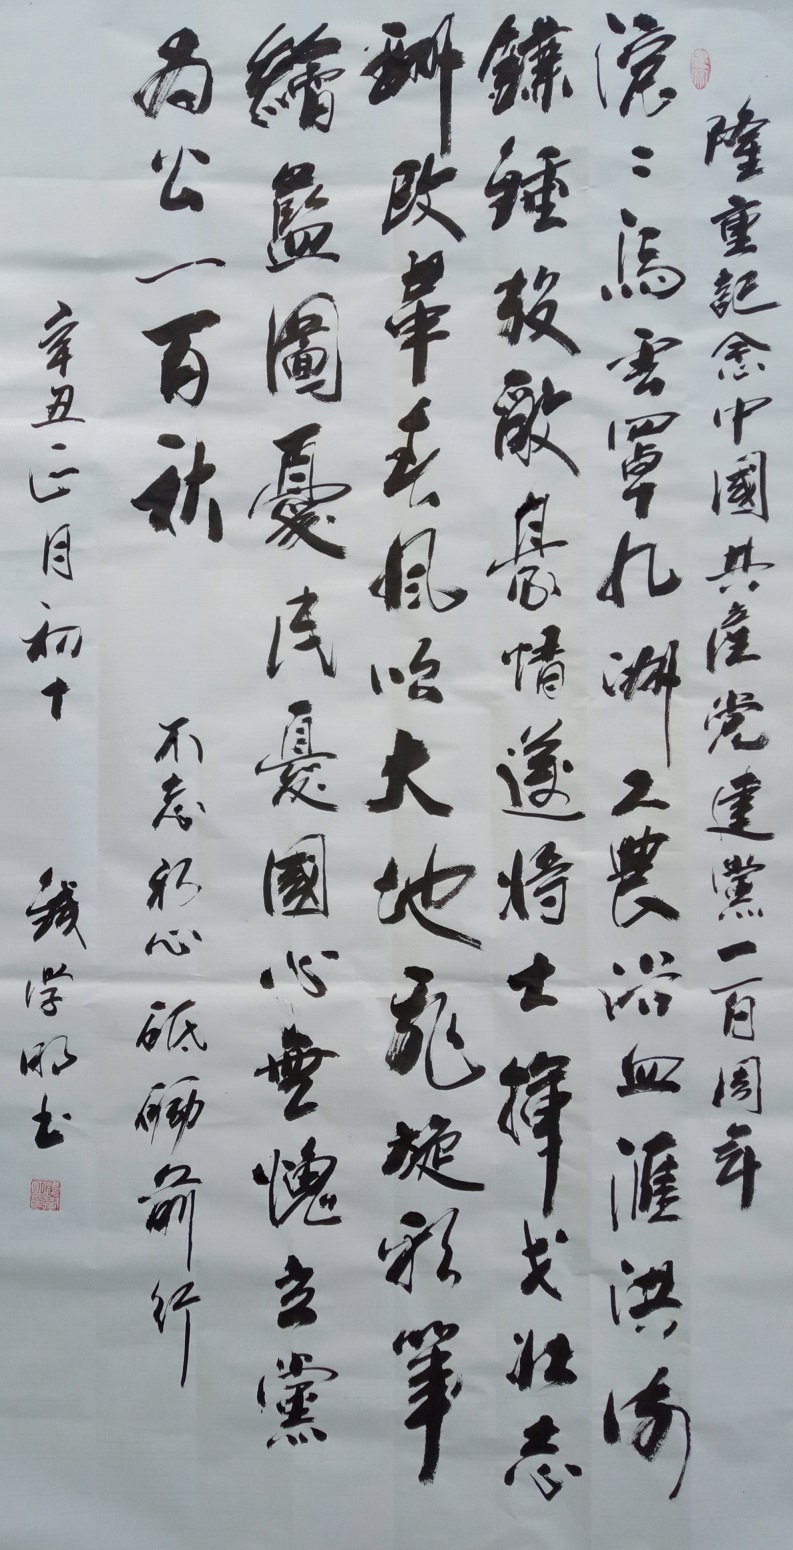 隆重記念中國共產党建黨一百周年
滾〻烏雲罩九洲工農浴血滙洪流
鐮錘殺敵豪情將士揮戈壯志
酬改革春風吹大地飛旋彩筆
繪藍圖憂民憂國心無愧立黨
為公一百秋
不忘初心砥礪前行
辛丑正月初十
錢学明书